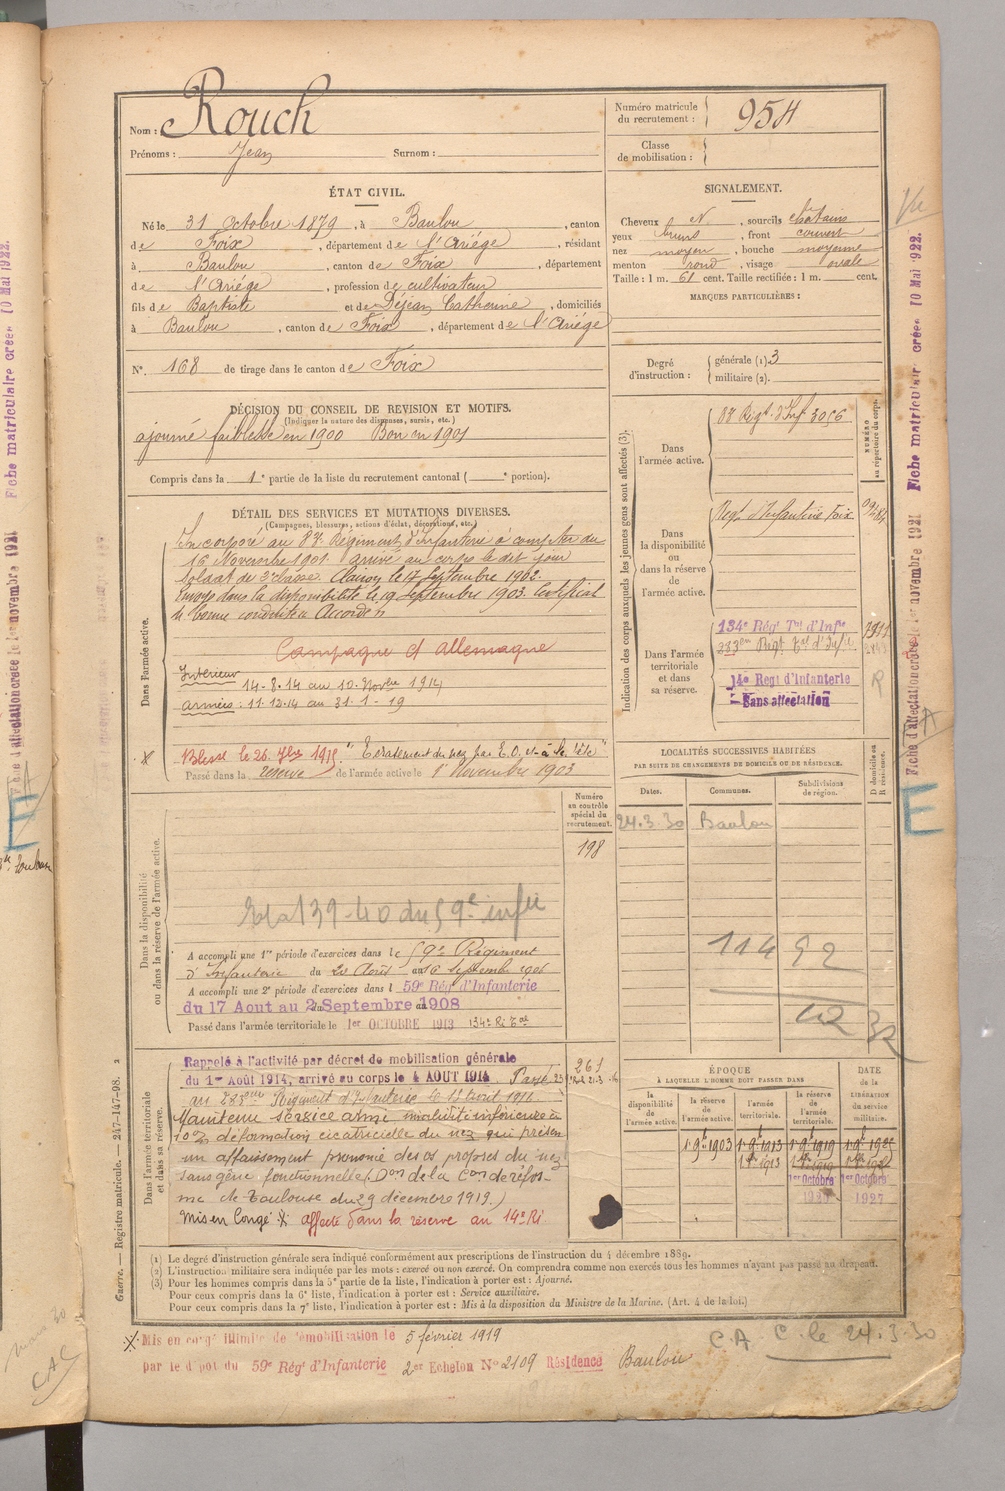 Nom : Rouch
Prénoms : Jean Surnom :
Numéro matricule du recrutement : 954
Classe de mobilisation :
ÉTAT CIVIL.
Né le 31 Octobre 1879, à Baulou, canton
de Foix, département de l'Ariége, résidant
à Baulou, canton de Foix, département
de l'Ariége, profession de cultivateur
fils de Baptiste et de Déjean Catherine, domiciliés
à Baulou, canton de Foix, département de l'Ariége
N°. 168 de tirage dans le canton de Foix
SIGNALEMENT.
Cheveux N, sourcils chatains
yeux bruns, front couvert
nez moyen, bouche moyenne
menton rond, visage ovale
Taille : 1 m. 61 cent. Taille rectifiée : 1 m. cent.
MARQUES PARTICULIÈRES :
Degré d'instruction : générale (1) 3
militaire (2).
DÉCISION DU CONSEIL DE REVISION ET MOTIFS.
(Indiquer la nature des dispenses, sursis, etc.)
ajourné faiblesse en 1900 Bon en 1901
Compris dans la 1e partie de la liste du recrutement cantonal ( e portion).
DÉTAIL DES SERVICES ET MUTATIONS DIVERSES.
(Campagnes, blessures, actions d'éclat, décorations, etc.)
Dans l'armée active.
Incorporé au Régiment d'Infanterie à compter du
16 Novembre 1901 arrivé au corps le dit jour
Soldat de 2e classe. Clairon le 17 Septembre 1902.
Envoyé dans la disponibilité le 19 Septembre 1903. Certificat
de bonne conduite Accordé
Campagne ct Allemagne
Intérieur 14-8-14 au 10 Novbre 1914
armées : 11-12-14 au 31-1-19
Blessé le 26 7bre 1915 "Eclatement du nez par E.O. à la tête"
Passé dans la réserve de l'armée active le 1er Novembre 1903
Indication des corps auxquels les jeunes gens sont affectés (3).
NUMÉRO au répertoire du corps.
Dans l'armée active.
Régt. d'Inf. 3056
Dans la disponibilité ou dans la réserve de l'armée active.
Régt. d'Infanterie Foix
Dans l'armée territoriale et dans sa réserve.
134e Rég Tal d'Infie
283em Régt Tal d'Infie
14e Regt d'Infanterie
Sans affectation
LOCALITÉS SUCCESSIVES HABITÉES
PAR SUITE DE CHANGEMENTS DE DOMICILE OU DE RÉSIDENCE.
Dates. Communes. Subdivisions de région. D domicile ou R résidence.
24.3.30 Baulou
Dans la disponibilité ou dans la réserve de l'armée active.
Numéro au contrôle spécial du recrutement.
198
A accompli une 1re période d'exercices dans le 59e Régiment
d'Infanterie du 20 Août au 16 Septembre 1906
A accompli une 2e période d'exercices dans l 59e Rég d'Infanterie
du 17 Aout au 2 Septembre 1908
Passé dans l'armée territoriale le 1er OCTOBRE 1913 134e Ri Tal
Dans l'armée territoriale et dans sa réserve.
261
Rappelé à l'activité par décret de mobilisation générale
du 1er Août 1914, arrivé au corps le 4 AOUT 1914. Passé
au 283eme Régiment d'Infanterie le Avril 1916
Maintenu service armé invalidité inférieure à
10% déformation cicatricielle du nez qui présen
un affaissement prononcé des os propres du nez
sans gêne fonctionnelle (Don de la Con de réfor-
me de Toulouse du 29 décembre 1919.)
Mis en Congé affecté dans la réserve au 14e Ri
ÉPOQUE
À LAQUELLE L'HOMME DOIT PASSER DANS
la disponibilité de l'armée active. la réserve de l'armée active. l'armée territoriale. la réserve de l'armée territoriale.
DATE DE LA LIBÉRATION du service militaire.
1er 9bre 1903 1er 9bre 1913 1er 9bre 1919
1er Octobre 1er Octobre
1927
(1) Le degré d'instruction générale sera indiqué conformément aux prescriptions de l'instruction du 4 décembre 1889.
(2) L'instruction militaire sera indiquée par les mots : exercé ou non exercé. On comprendra comme non exercés tous les hommes n'ayant pas passé au drapeau.
(3) Pour les hommes compris dans la 5e partie de la liste, l'indication à porter est : Ajourné.
Pour ceux compris dans la 6e liste, l'indication à porter est : Service auxiliaire.
Pour ceux compris dans la 7e liste, l'indication à porter est : Mis à la disposition du Ministre de la Marine. (Art. 4 de la loi.)
Mis en congé illimité de démobilisation le 5 février 1919
par le dépot du 59e Rég d'Infanterie 2er Echelon No 2109 Résidence Baulou
C.A C. le 24.3.30
Guerre. — Registre matricule. — 247-147-98.
Fiche matriculaire créée 10 Mai 1922.
E